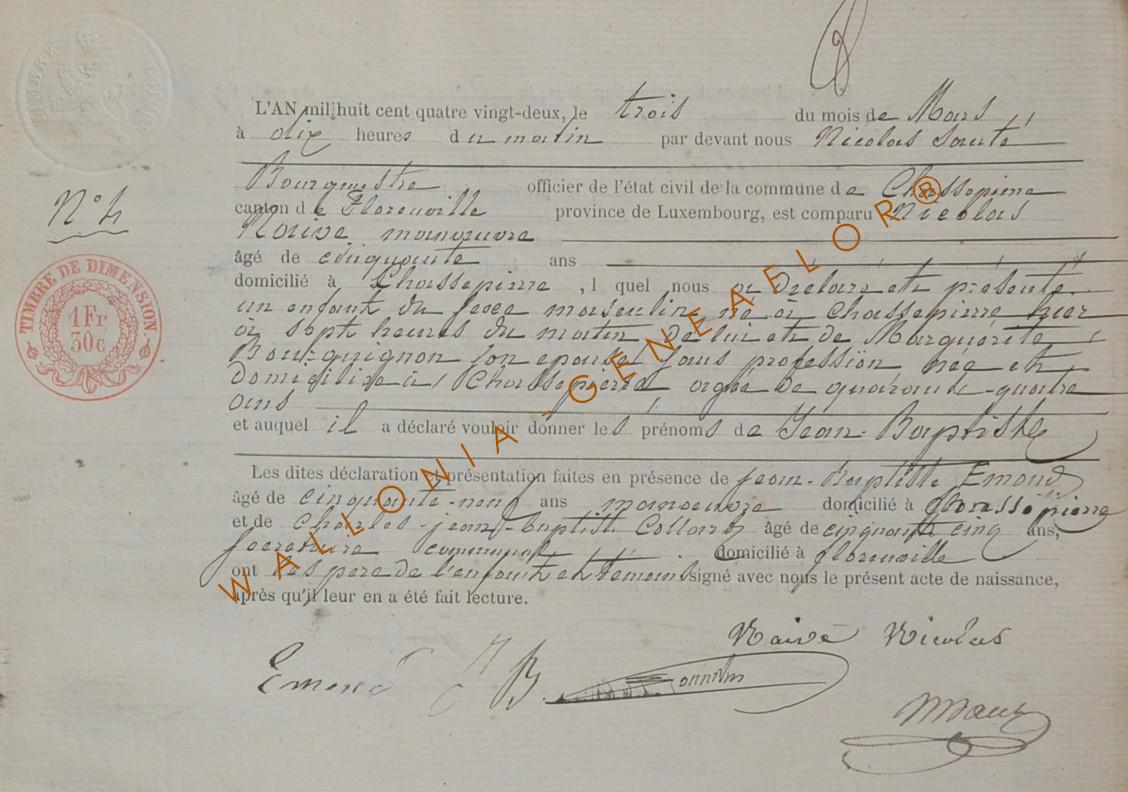 L'AN mil huit cent quatre vingt-deux, le trois du mois de Mars
à dix heures du matin par devant nous Nicolas
Bourgmestre officier de l'état civil de la commune de Chassepierre
N° 4
canton de Florenville province de Luxembourg, est comparu Nicolas
manœuvre
âgé de cinquante ans
domicilié à Chassepierre, l quel nous a déclaré et présenté
un enfant du sexe masculin né à Chassepierre hier
à sept heures du matin de lui et de Marguerite
TIMBRE DE DIMENSION
1 Fr
30c
Bourguignon son epouse sans profession née et
domiciliée à Chassepierre agée de quarante-quatre
ans
et auquel il a déclaré vouloir donner les prénoms de Jean-Baptiste
Les dites déclaration et présentation faites en présence de Jean-Baptiste Emond
âgé de cinquante-neuf ans manoeuvre domicilié à Chassepierre
et de Charles-Jean-Baptiste âgé de cinquante cinq ans,
secretaire communal domicilié à Florenville
ont les pere de l'enfant et témoins signé avec nous le présent acte de naissance,
après qu'il leur en a été fait lecture.
Nicolas
Emond J B.
WALLONIA-GENEAFLOR®